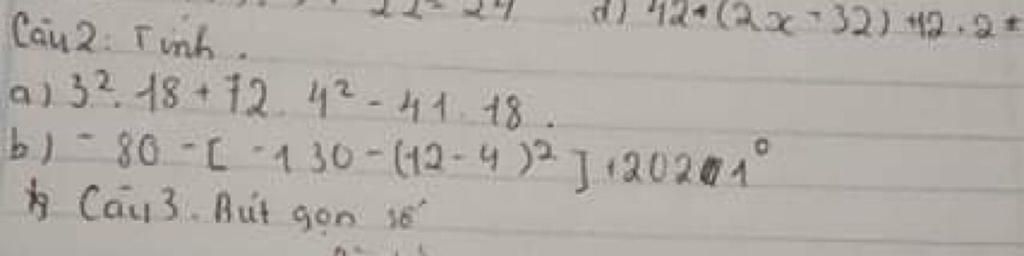 22 - 24 d) 42 + (2x - 32) + 12 . 2
Câu 2: Tính.
a) 3². 18 + 72. 4² - 41. 18.
b) - 80 - [ - 130 - (12 - 4 )² ] + 2021⁰
Câu 3. Rút gọn